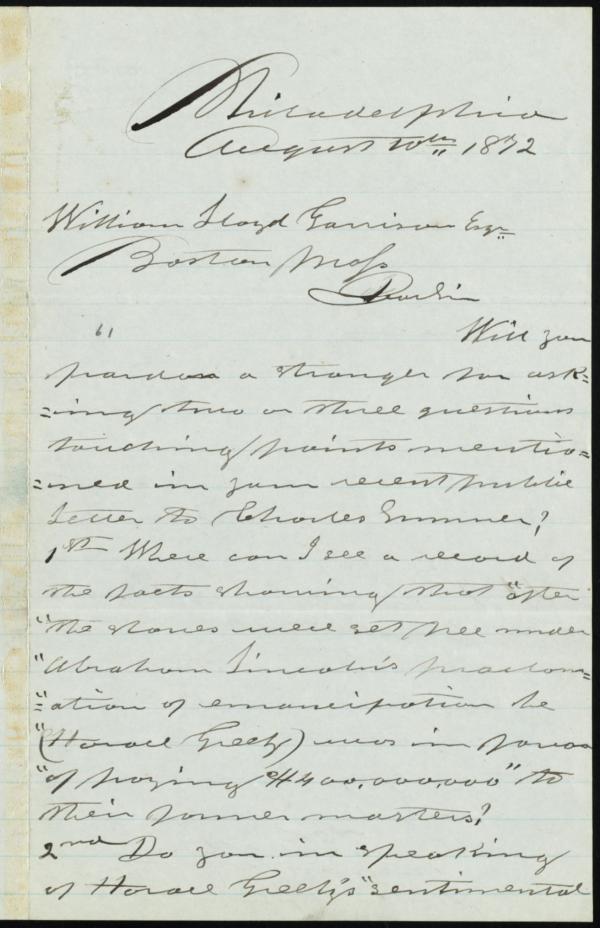 Philadelphia
August 10th 1872
William Lloyd Garrison Esqr
Boston Mass
Dear Sir
"
Will you
pardon a stranger for ask=
=ing two or three questions
touching points mentio=
=ned in your recent public
letter to Charles Sumner?
1st Where can I see a record of
the facts showing that "after
"the slaves were set free under
"Abraham Lincoln's proclam=
"=ation of emancipation he
"(Horace Greely) was in favor
"of paying $400,000,000" to
their former masters?
2nd Do you in speaking
of Horace Greely's "sentimental